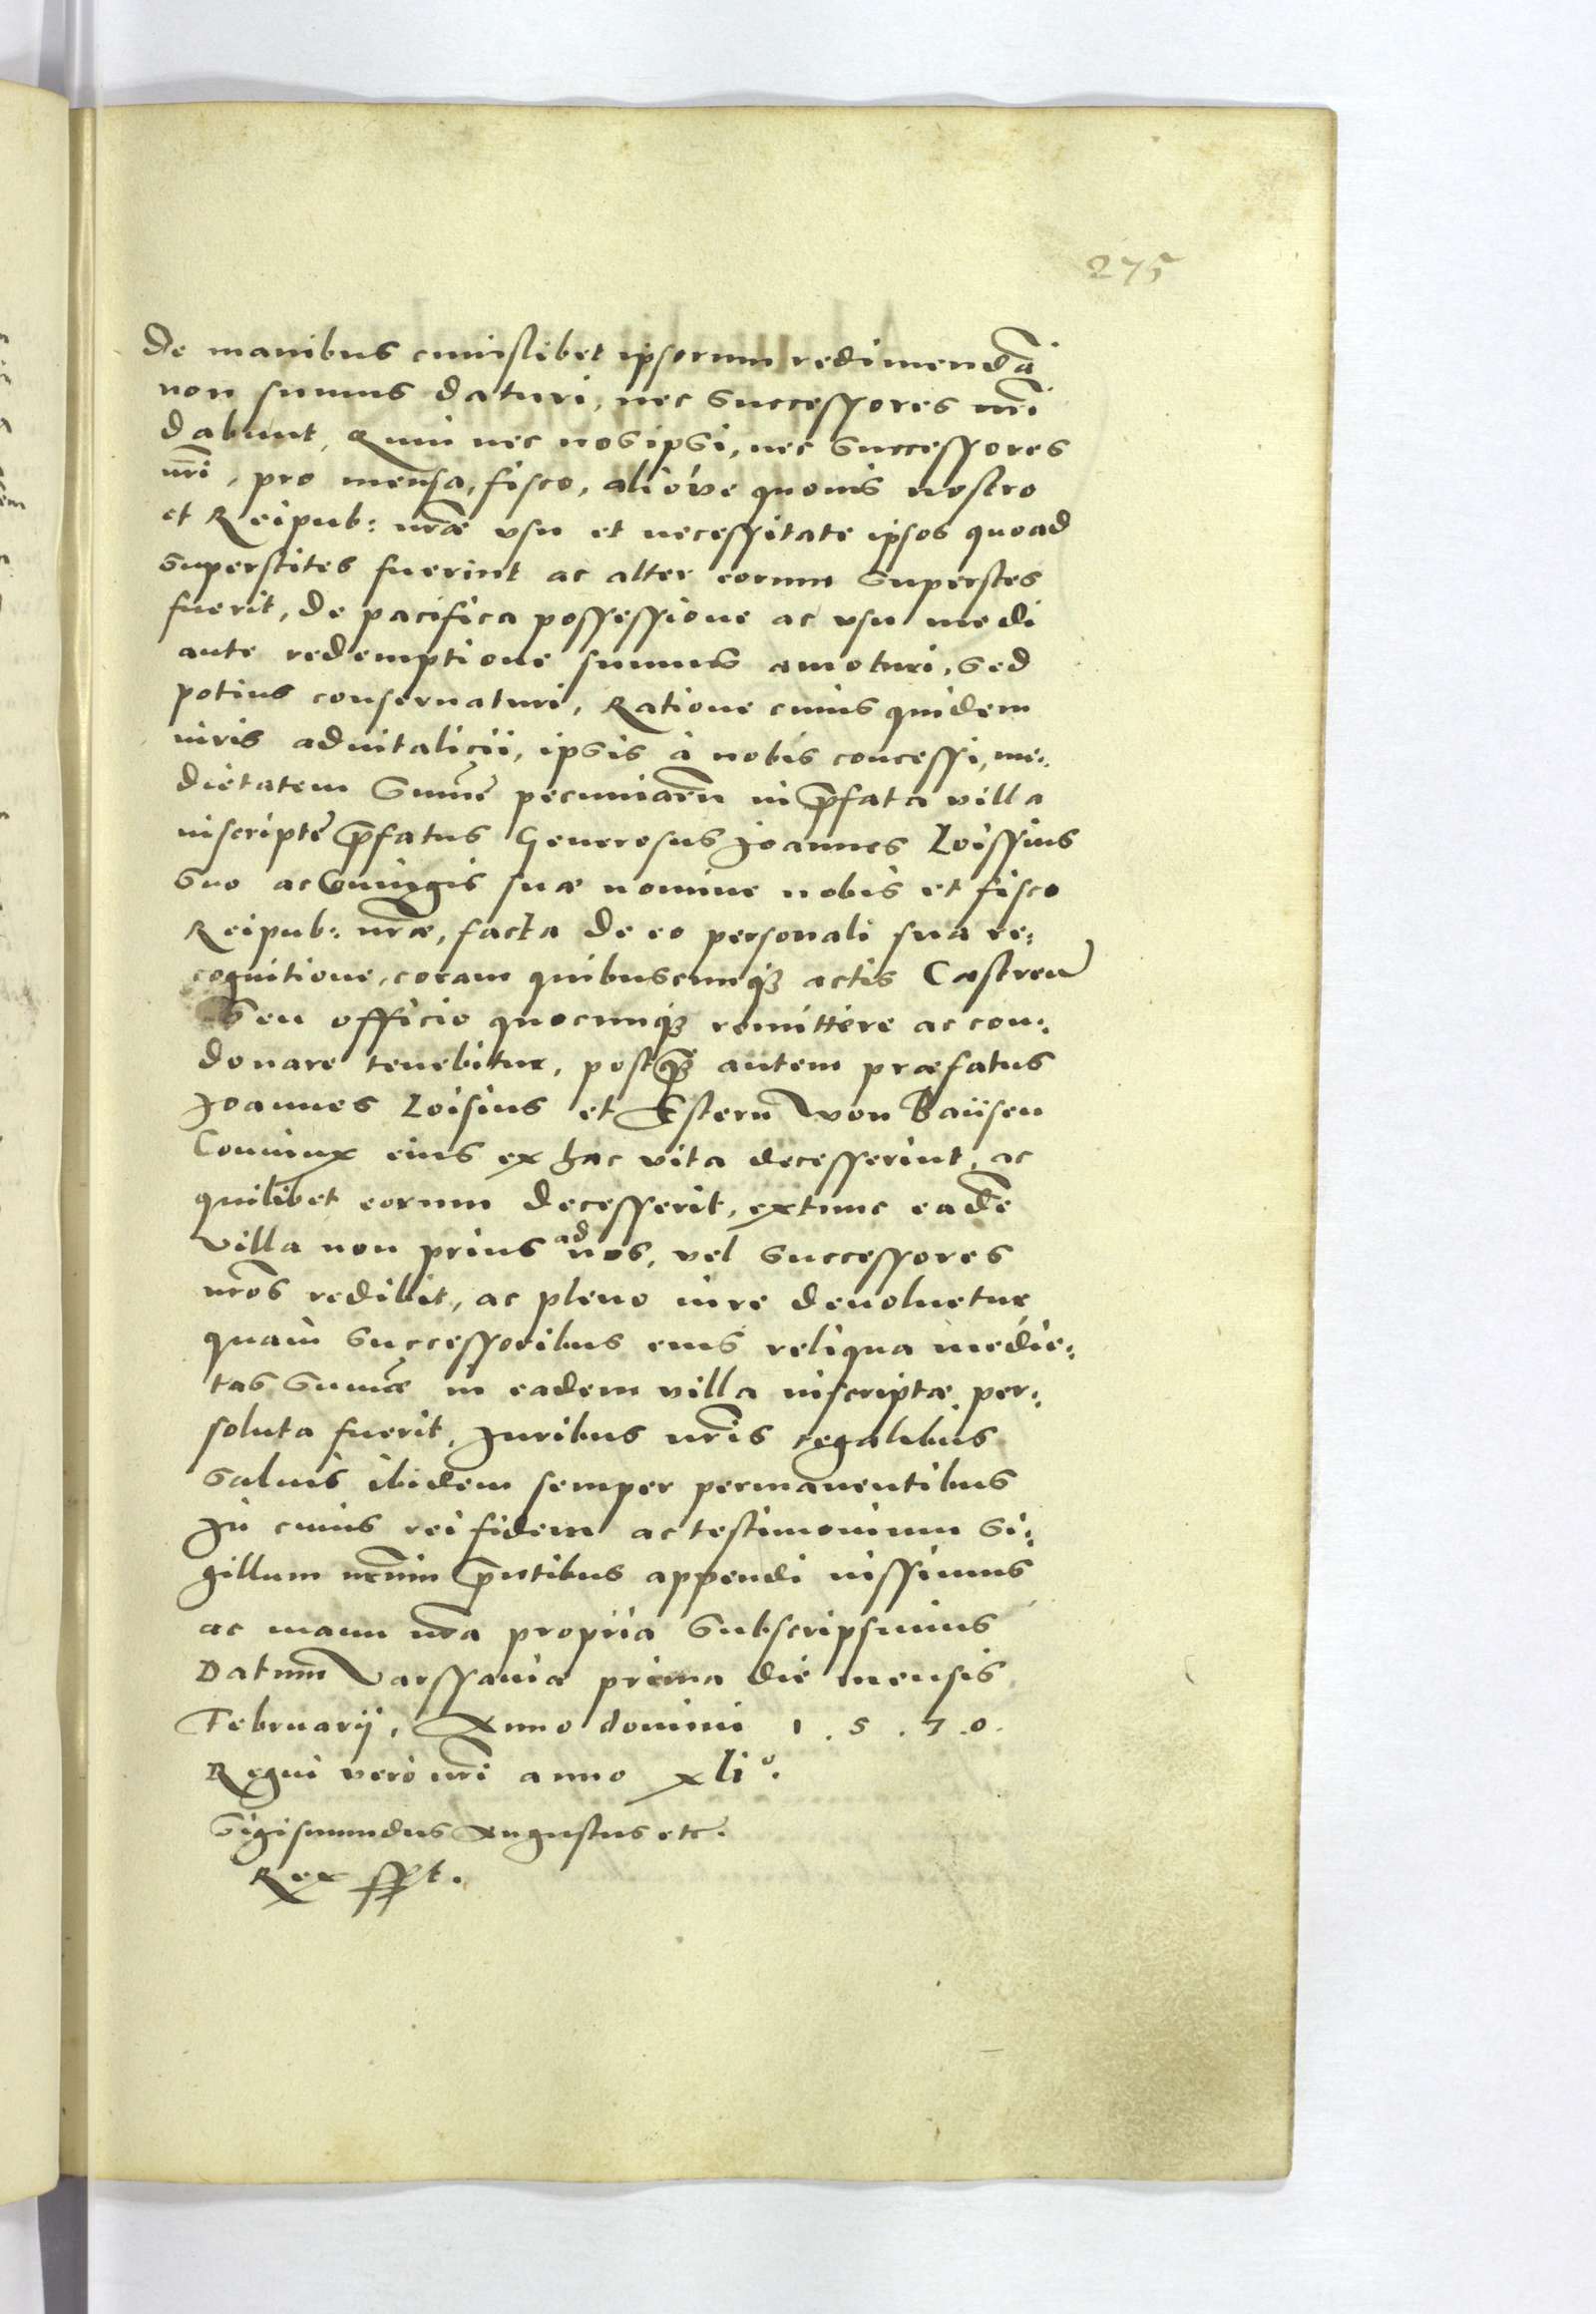 275
de manibus cuiuslibet ipsorum redimendā
non sumus daturi, nec successores nr̄i
dabunt, Quin nec nosipsi, nec successores
nr̄i, pro mensa, fisco, alióve quouis nostro
et Reipub: nr̄æ vsu et necessitate ipsos quoad
superstites fuerint ac alter eorum superstes
fuerit, de pacifica possessione ac vsu medi
ante redemptione sumus amoturi, sed
potius conseruaturi, Ratione cuius quidem
iuris aduitalicii, ipsis à nobis concessi, me:
dietatem sum̄e pecuniarū in p̄fata villa
inscripte p̄fatus Generosus Joannes Loissius
suo ac Coniugis suæ nomine nobis et fisco
Reipub: nr̄æ, facta de eo personali sua re:
cognitione, coram quibuscunqȝ actis Castren̄
seu officio quocunqȝ remittere ac con:
donare tenebitur, postqȝ̄ autem præfatus
Joannes Loisius et Estern von Baÿsen
Coniunx eius ex hac vita decesserint, ac
quilibet eorum decesserit, extunc eadē
villa non prius ad nos, vel successores
nr̄os redibit, ac pleno iure deuoluetur
quam successoribus eius reliqua medie:
tas sum̄æ in eadem villa inscriptæ per:
soluta fuerit, Juribus nr̄is regalibus
saluis ibidem semper permanentibus
In cuius rei fidem ac testimonium si:
gillum nr̄um p̄ntibus appendi iussimus
ac manu nr̄a propria subscripsimus
Datum Varssaviæ prima die mensis
Februarij, Anno domini 1.5.70.
Regni vero nr̄i anno xli°.
Sigismundus Augustus etc.
Rex sspt.